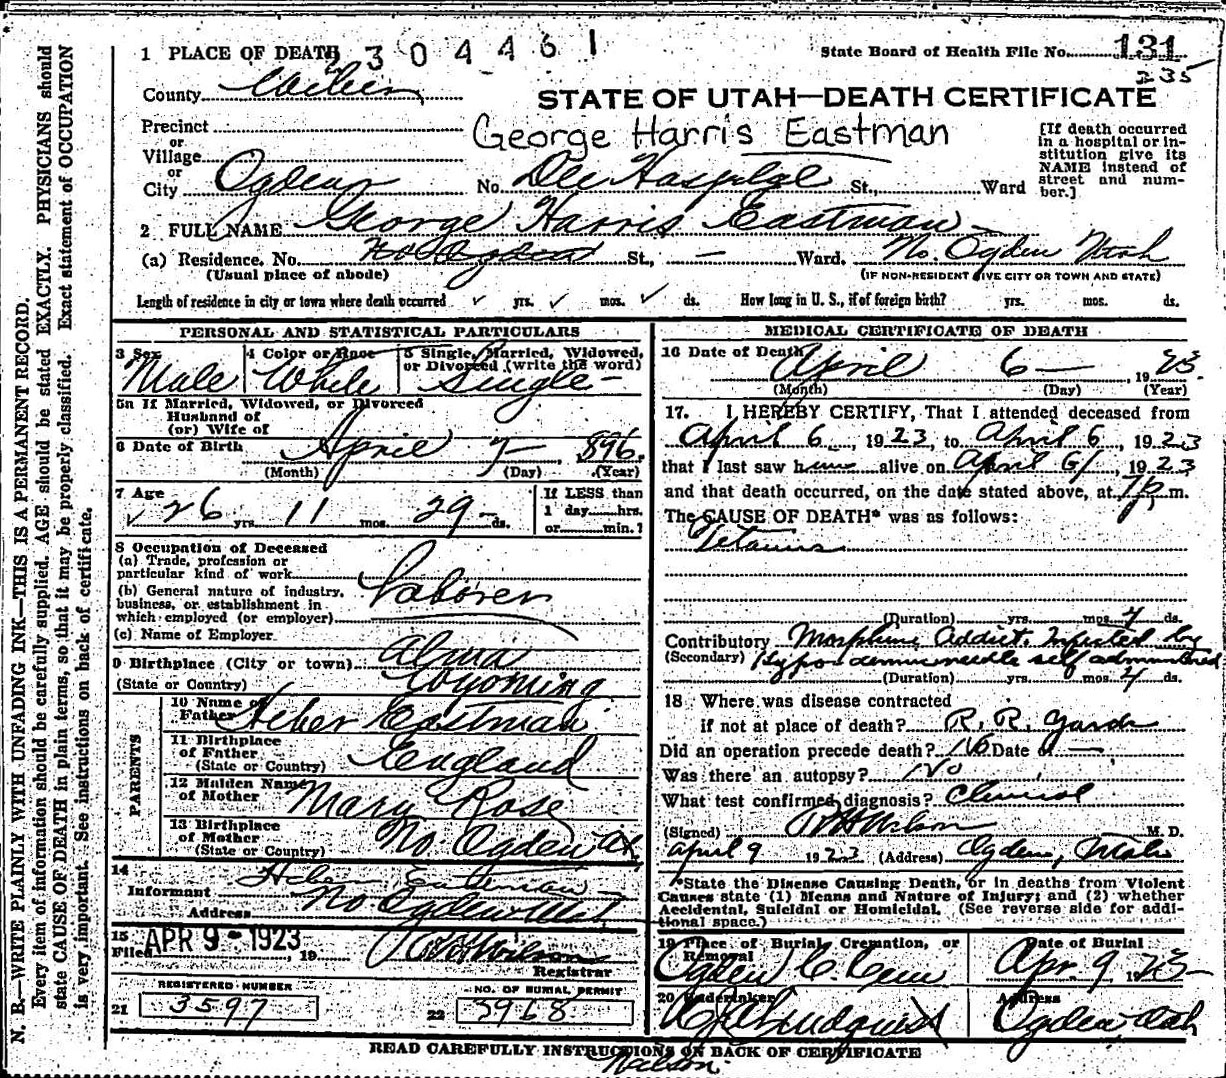 1 PLACE OF DEATH
2304461
State Board of Health File No. 131
235
County Weber
STATE OF UTAH—DEATH CERTIFICATE
Precinct
or
Village
or
City Ogden No. Dee Hospital St., Ward
George Harris Eastman
[If death occurred
in a hospital or in-
stitution give its
NAME instead of
street and num-
ber.]
2 FULL NAME George Harris Eastman
(a) Residence. No. No. Ogden St., — Ward. No. Ogden Utah
(Usual place of abode) (IF NON-RESIDENT GIVE CITY OR TOWN AND STATE)
Length of residence in city or town where death occurred ✓ yrs. ✓ mos. ✓ ds. How long in U. S., if of foreign birth? yrs. mos. ds.
PERSONAL AND STATISTICAL PARTICULARS
3 Sex
Male
4 Color or Race
White
5 Single, Married, Widowed,
or Divorced (write the word)
Single
5a If Married, Widowed, or Divorced
Husband of
(or) Wife of
6 Date of Birth April 7 896.
(Month) (Day) (Year)
7 Age
✓ 26 yrs. 11 mos. 29 ds.
If LESS than
1 day hrs.
or min.?
8 Occupation of Deceased
(a) Trade, profession or
particular kind of work
Laborer
(b) General nature of industry,
business, or establishment in
which employed (or employer)
(c) Name of Employer
9 Birthplace (City or town) Almy
(State or Country) Wyoming
PARENTS
10 Name of
Father Heber Eastman
11 Birthplace
of Father
(State or Country) England
12 Maiden Name
of Mother Mary Rose
13 Birthplace
of Mother
(State or Country) No Ogden Ut.
14
Informant Heber Eastman
Address No Ogden Utah
15
Filed APR 9 - 1923, 19 Wilson
Registrar
REGISTERED NUMBER
21 3597
NO. OF BURIAL PERMIT
22 3968
MEDICAL CERTIFICATE OF DEATH
16 Date of Death April 6 — , 1923.
(Month) (Day) (Year)
17. I HEREBY CERTIFY, That I attended deceased from
April 6, 1923, to April 6, 1923
that I last saw him alive on April 6, 1923
and that death occurred, on the date stated above, at 7 p. m.
The CAUSE OF DEATH* was as follows:
Tetanus
(Duration) yrs. mos. 4 ds.
Contributory Morphine Addict. Infected by
(Secondary) Hypodermic needle self administered
(Duration) yrs. mos. 4 ds.
18 Where was disease contracted
if not at place of death? R. R. Yards
Did an operation precede death? No Date of —
Was there an autopsy? No
What test confirmed diagnosis? Clinical
(Signed) Wilson M. D.
April 9 1923 (Address) Ogden, Utah
*State the Disease Causing Death, or in deaths from Violent
Causes state (1) Means and Nature of Injury; and (2) whether
Accidental, Suicidal or Homicidal. (See reverse side for addi-
tional space.)
19 Place of Burial, Cremation, or
Removal
Ogden C. Cem
Date of Burial
Apr. 9 1923
20 Undertaker
Lindquist
Address
Ogden Utah
READ CAREFULLY INSTRUCTIONS ON BACK OF CERTIFICATE
Wilson
N. B.—WRITE PLAINLY WITH UNFADING INK—THIS IS A PERMANENT RECORD.
Every item of information should be carefully supplied. AGE should be stated EXACTLY. PHYSICIANS should
state CAUSE OF DEATH in plain terms, so that it may be properly classified. Exact statement of OCCUPATION
is very important. See instructions on back of certificate.